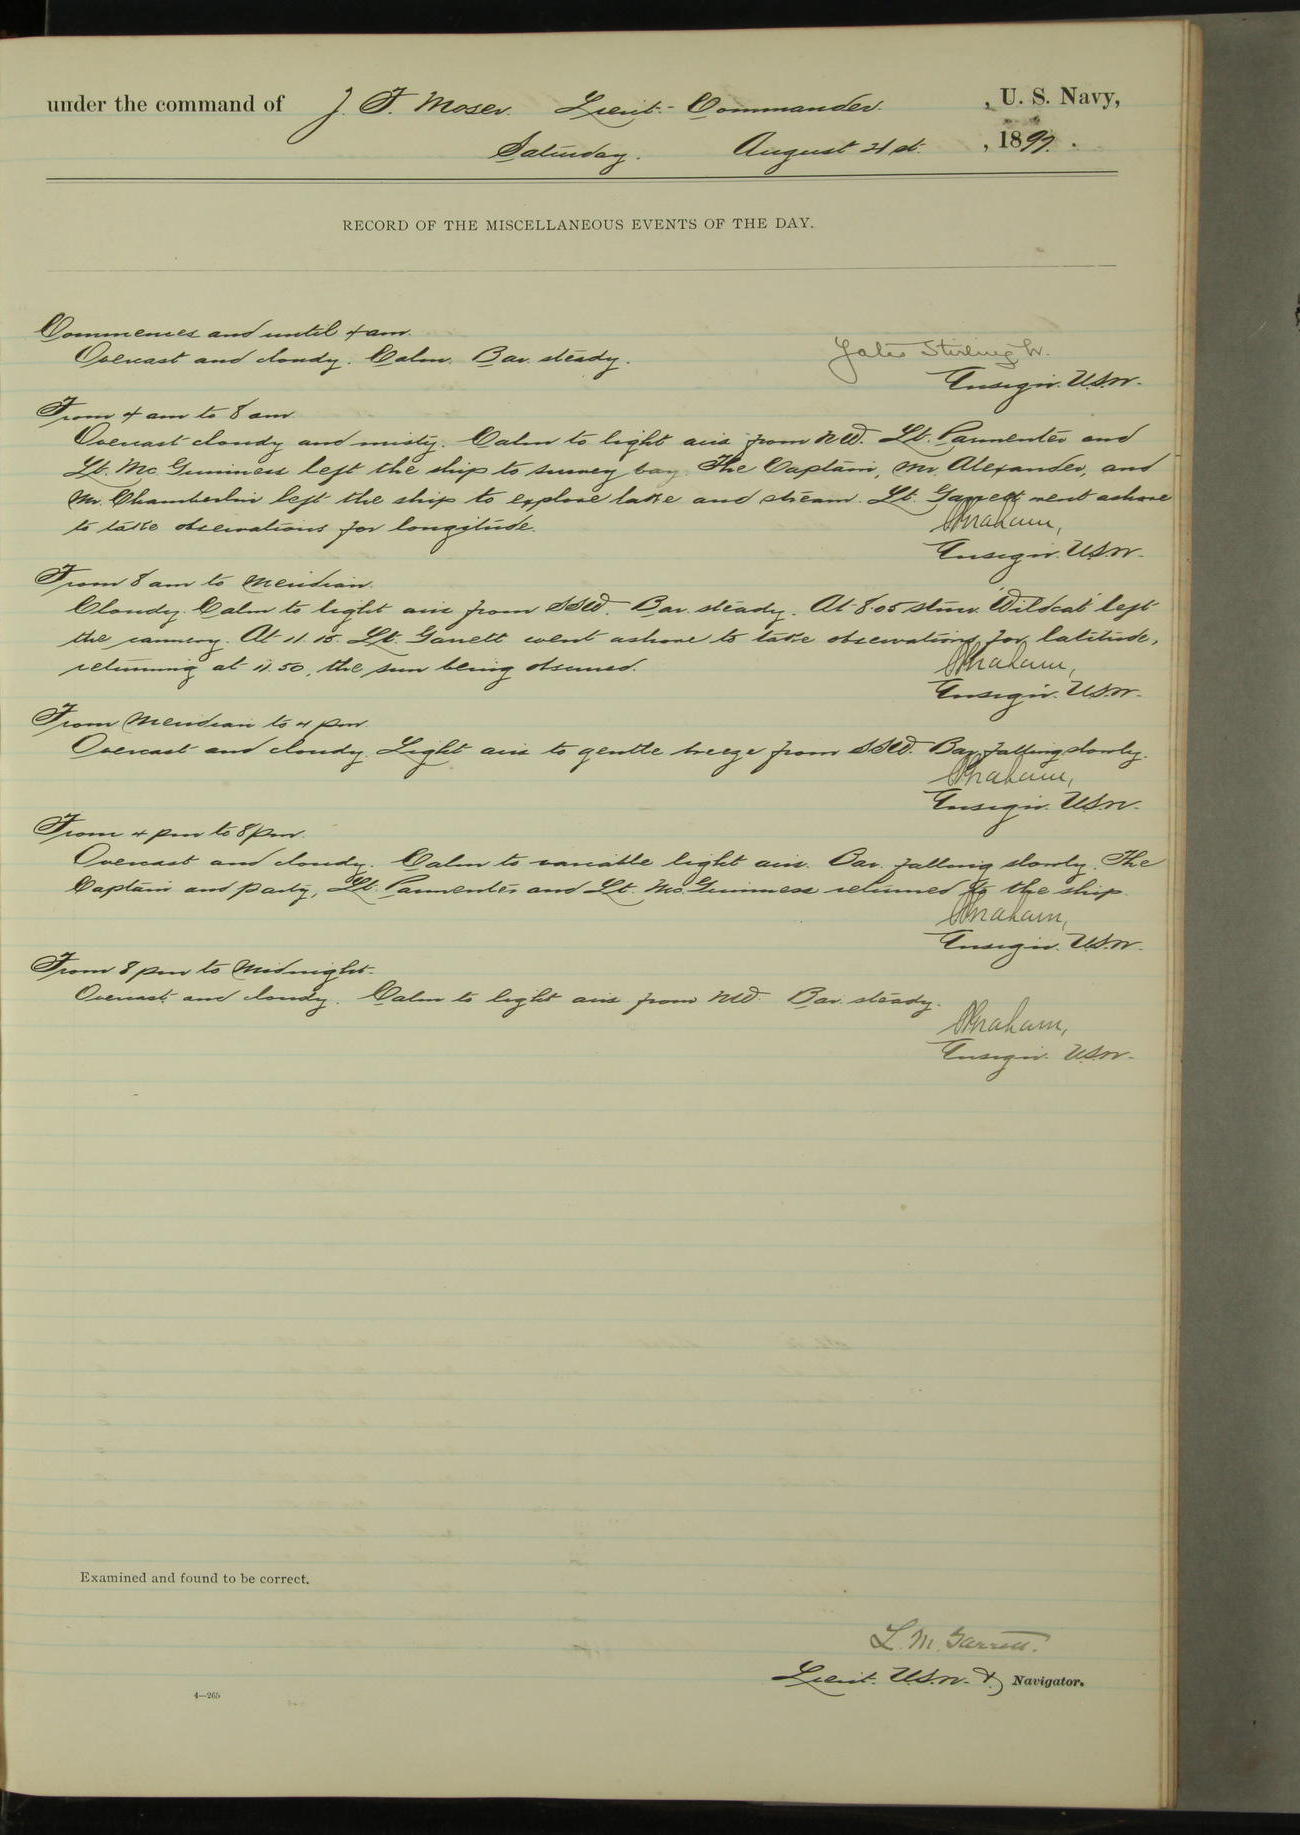 under the command of J. F. Moser. Lieut-Commander. , U. S. Navy,
Saturday. August 21st. , 1897.
RECORD OF THE MISCELLANEOUS EVENTS OF THE DAY.
Commences and until 4 am.
Overcast and cloudy. Calm. Bar. steady.
Yates Stirling Jr.
Ensign. U.S.N.
From 4 am to 8 am
Overcast cloudy and misty. Calm to light airs from NW. Lt. Parmenter and
Lt. Mc Guinness left the ship to survey bay. The Captain, Mr. Alexander, and
Mr. Chamberlin left the ship to explore lake and stream. Lt. Garrett went ashore
to take observations for longitude.
Ensign. U.S.N.
From 8 am to Meridian.
Cloudy. Calm to light airs from SSW. Bar. steady. At 8.05 stmr. "Wildcat" left
the cannery. At 11.15. Lt. Garrett went ashore to take observations for latitude,
returning at 11.50, the sun being obscured.
Ensign. U.S.N.
From Meridian to 4 pm.
Overcast and cloudy. Light airs to gentle breeze from SSW. Bar. falling slowly.
Ensign. U.S.N.
From 4 pm to 8 pm.
Overcast and cloudy. Calm to variable light airs. Bar. falling slowly. The
Captain and party, Lt. Parmenter and Lt. Mc. Guinness returned to the ship.
Ensign. U.S.N.
From 8 pm to Midnight.
Overcast and cloudy. Calm to light airs from NW. Bar. steady.
Ensign. U.S.N.
Examined and found to be correct.
L. M. Garrett.
Lieut. U.S.N. & Navigator.
4—265